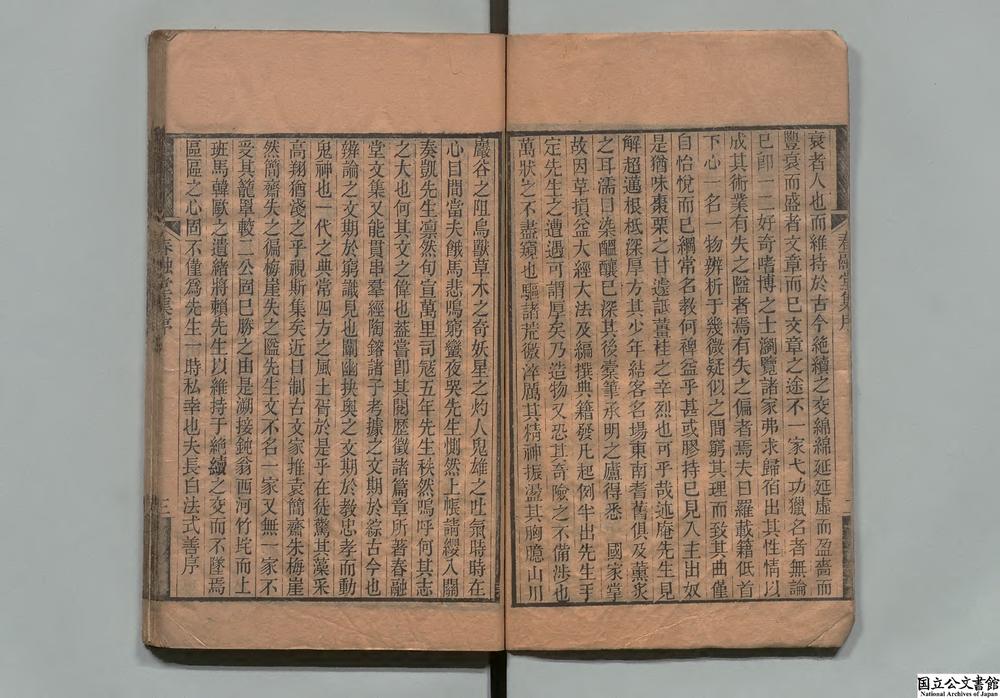 衰者人也而維持於古今絶續之交綿綿延延虛而盈嗇而
豐衰而盛者文章而已文章之途不一家弋功獵名者無論
已卽一二好奇嗜博之士瀏覽諸家弗求歸宿出其性情以
成其術業有失之隘者焉有失之偏者焉夫日羅載籍低首
下心一名一物辨析于幾微疑似之間窮其理而致其曲僅
自怡悅而已綱常名教何裨益乎甚或膠持已見入主出奴
是猶味棗栗之甘遽詆薑桂之辛烈也可乎哉述庵先生見
解超邁根柢深厚方其少年結客名場東南耆舊俱及薰炙
之耳濡目染醞釀已深其後橐筆承明之廬得悉 國家掌
故因革損益大經大法及編撰典籍發凡起例半出先生手
定先生之遭遇可謂厚矣乃造物又恐其奇險之不備涉也
萬狀之不盡窺也驅諸荒徼淬厲其精神振盪其胸臆山川
巖谷之阻鳥獸草木之奇妖星之灼人鬼雄之吐氣時時在
心目間當夫餓馬悲鳴窮蠻夜哭先生慨然上帳請纓入關
奏凱先生凜然旬宣萬里司寇五年先生秩然嗚呼何其志
之大也何其文之偉也葢嘗卽其閱歷徵諸篇章所著春融
堂文集又能貫串羣經陶鎔諸子考據之文期於綜古今也
辨論之文期於窮識見也闡幽抉奧之文期於教忠孝而動
鬼神也一代之典常四方之風土胥於是乎在徒驚其藻采
高翔猶淺之乎視斯集矣近日制古文家推袁簡齋朱梅崖
然簡齋失之偏梅崖失之隘先生文不名一家又無一家不
受其籠罩較二公固已勝之由是溯接鈍翁西河竹垞而上
班馬韓歐之遺緒將賴先生以維持于絶續之交而不墜焉
區區之心固不僅爲先生一時私幸也夫長白法式善序
春融堂集序
二
春融堂集序
三
国立公文書館
National Archives of Japan